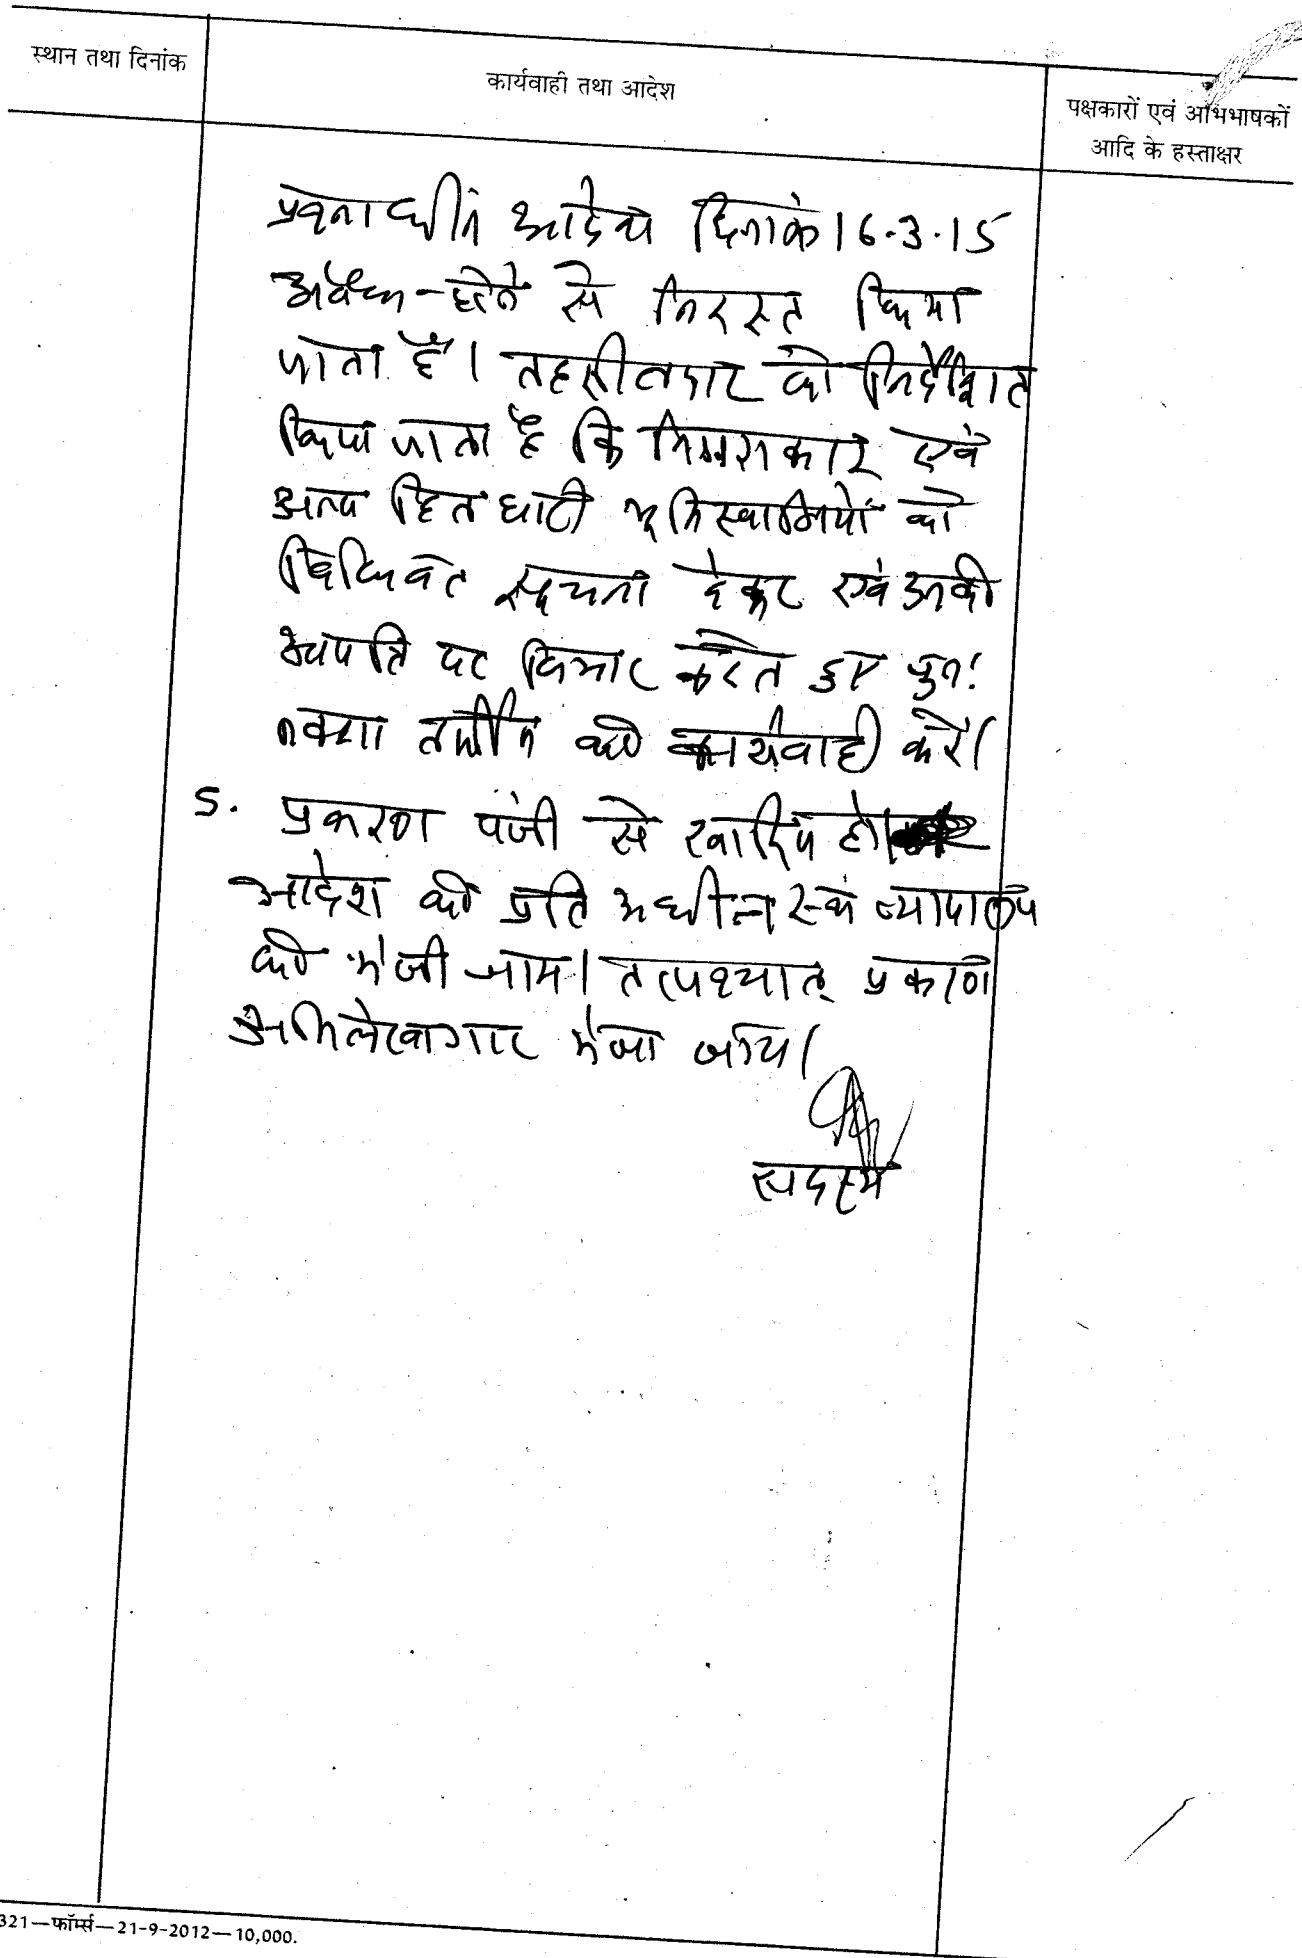 स्थान तथा दिनांक
कार्यवाही तथा आदेश
पक्षकारों एवं अभिभाषकों
आदि के हस्ताक्षर
प्रश्नाधीन आदेश दिनांक 16.3.15
अवैध होने से निरस्त किया
जाता है। तहसीलदार को निर्देशित
किया जाता है कि निगराकार एवं
अन्य हितधारी भूमिस्वामियों को
विधिवत सूचना देकर एवं उनकी
आपत्ति पर विचार करते हुए पुनः
नक्शा तर्मीम की कार्यवाही करें।
5. प्रकरण पंजी से खारिज हो।
आदेश की प्रति अधीनस्थ न्यायालय
को भेजी जाय। तत्पश्चात् प्रकरण
अभिलेखागार भेजा जाय।
सदस्य
321—फॉर्म्स—21-9-2012—10,000.